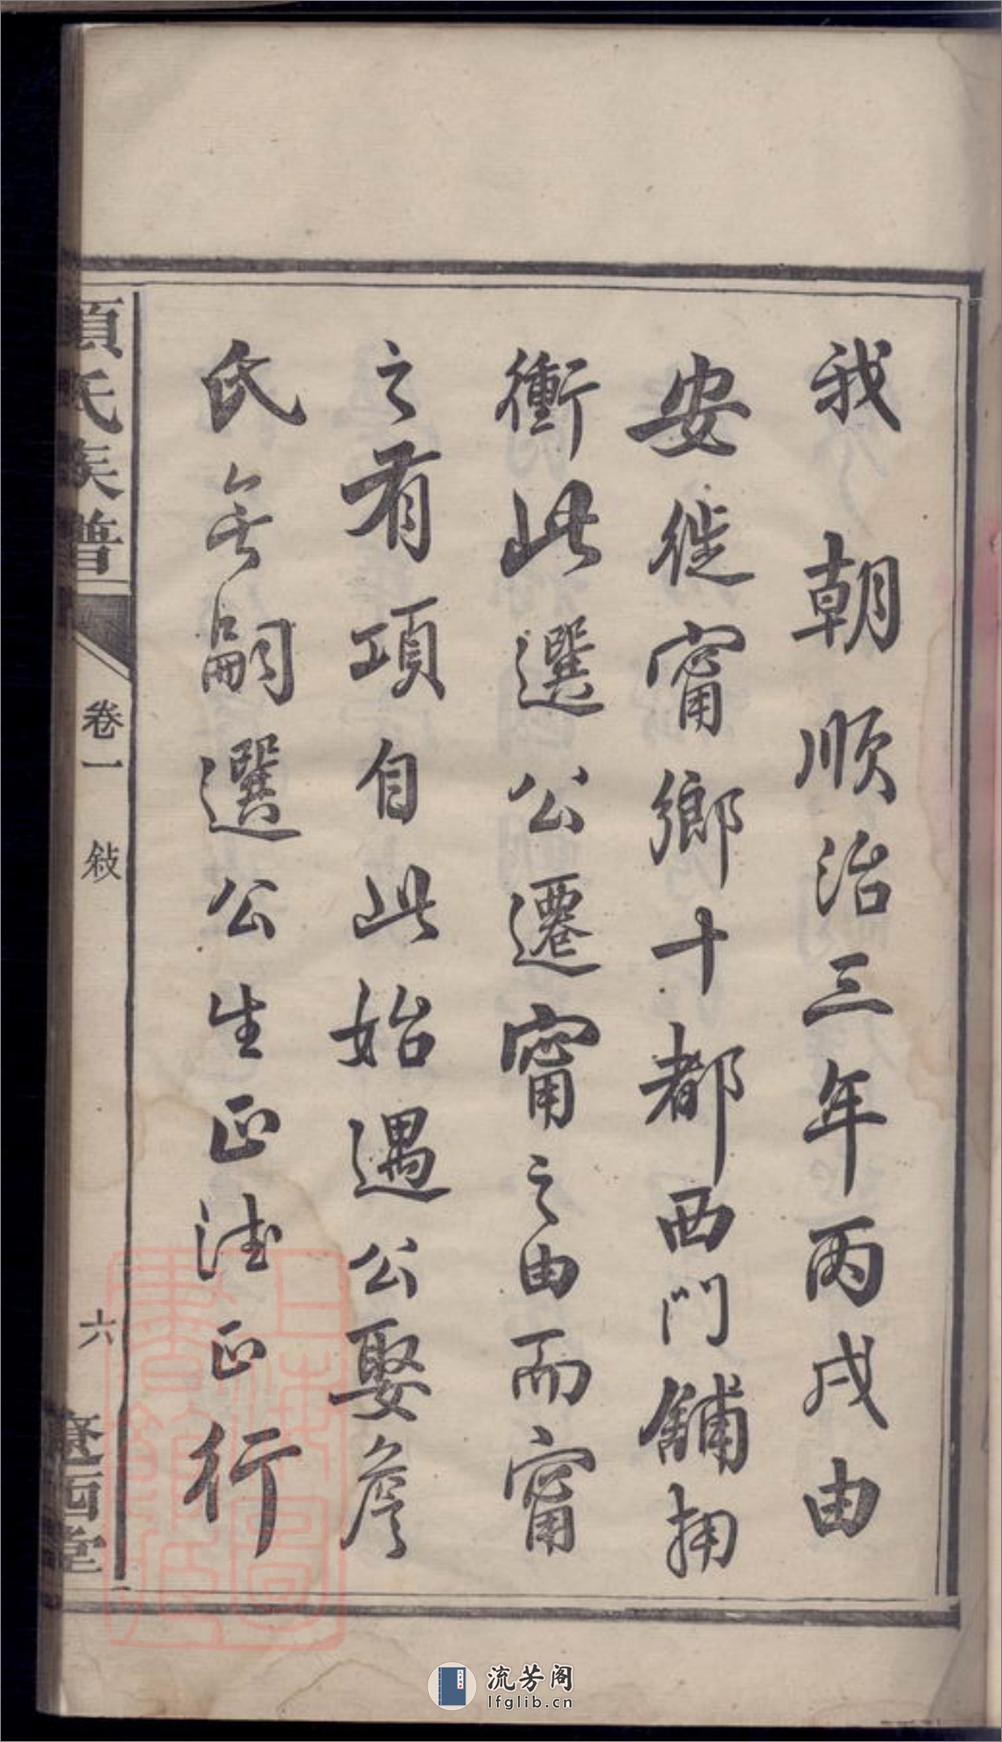 我 朝順治三年丙戌由
安徙甯鄉十都西門鋪拥
衝此選公遷甯之由而甯
之有項自此始遇公娶詹
氏無嗣選公生正法正行
項氏族譜
卷一 敍
六
遼西堂
上海圖書館藏
流芳阁
lfglib.cn